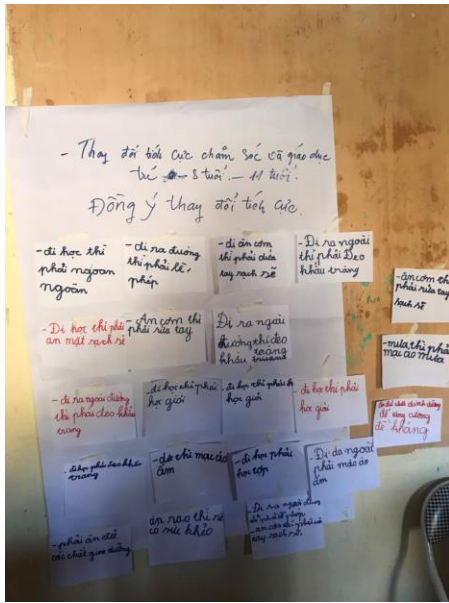 - Thay đổi tích cực chăm sóc và giáo dục
trẻ 5 tuổi - 11 tuổi.
Đồng ý thay đổi tích cực.
- đi học thì
phải ngoan
ngoãn
- đi ra đường
thì phải lễ,
phép
- đi ăn cơm
thì phải rửa
tay sạch sẽ
- Đi ra ngoài
thì phải Đeo
khẩu trang
- ăn cơm thì
phải rửa tay
sạch sẽ
- Đi học thì phải
ăn mặt sạch sẽ
- Ăn cơm thì
phải rửa tay
Đi ra ngoài
đường thì đeo
khẩu trang
- mưa thì phải
mặc áo mưa
- đi ra ngoài đường
thì phải đeo khẩu
trang
- đi học thì phải
học giỏi
- đi học thì phải
học giỏi
- đi học thì phải
học giỏi
ăn đủ chất dinh dưỡng
để tăng cường
đề kháng
- đi học phải đeo khẩu
trang
thì mặc áo
ấm
- đi học phải
học tốt
- Đi ra ngoài
phải mặc áo
ấm
- phải ăn đủ
các chất
thì sẽ
có sức khỏe
- Đi ra ngoài đường
thì phải lễ phép
- ăn cơm thì phải rửa
tay sạch sẽ.